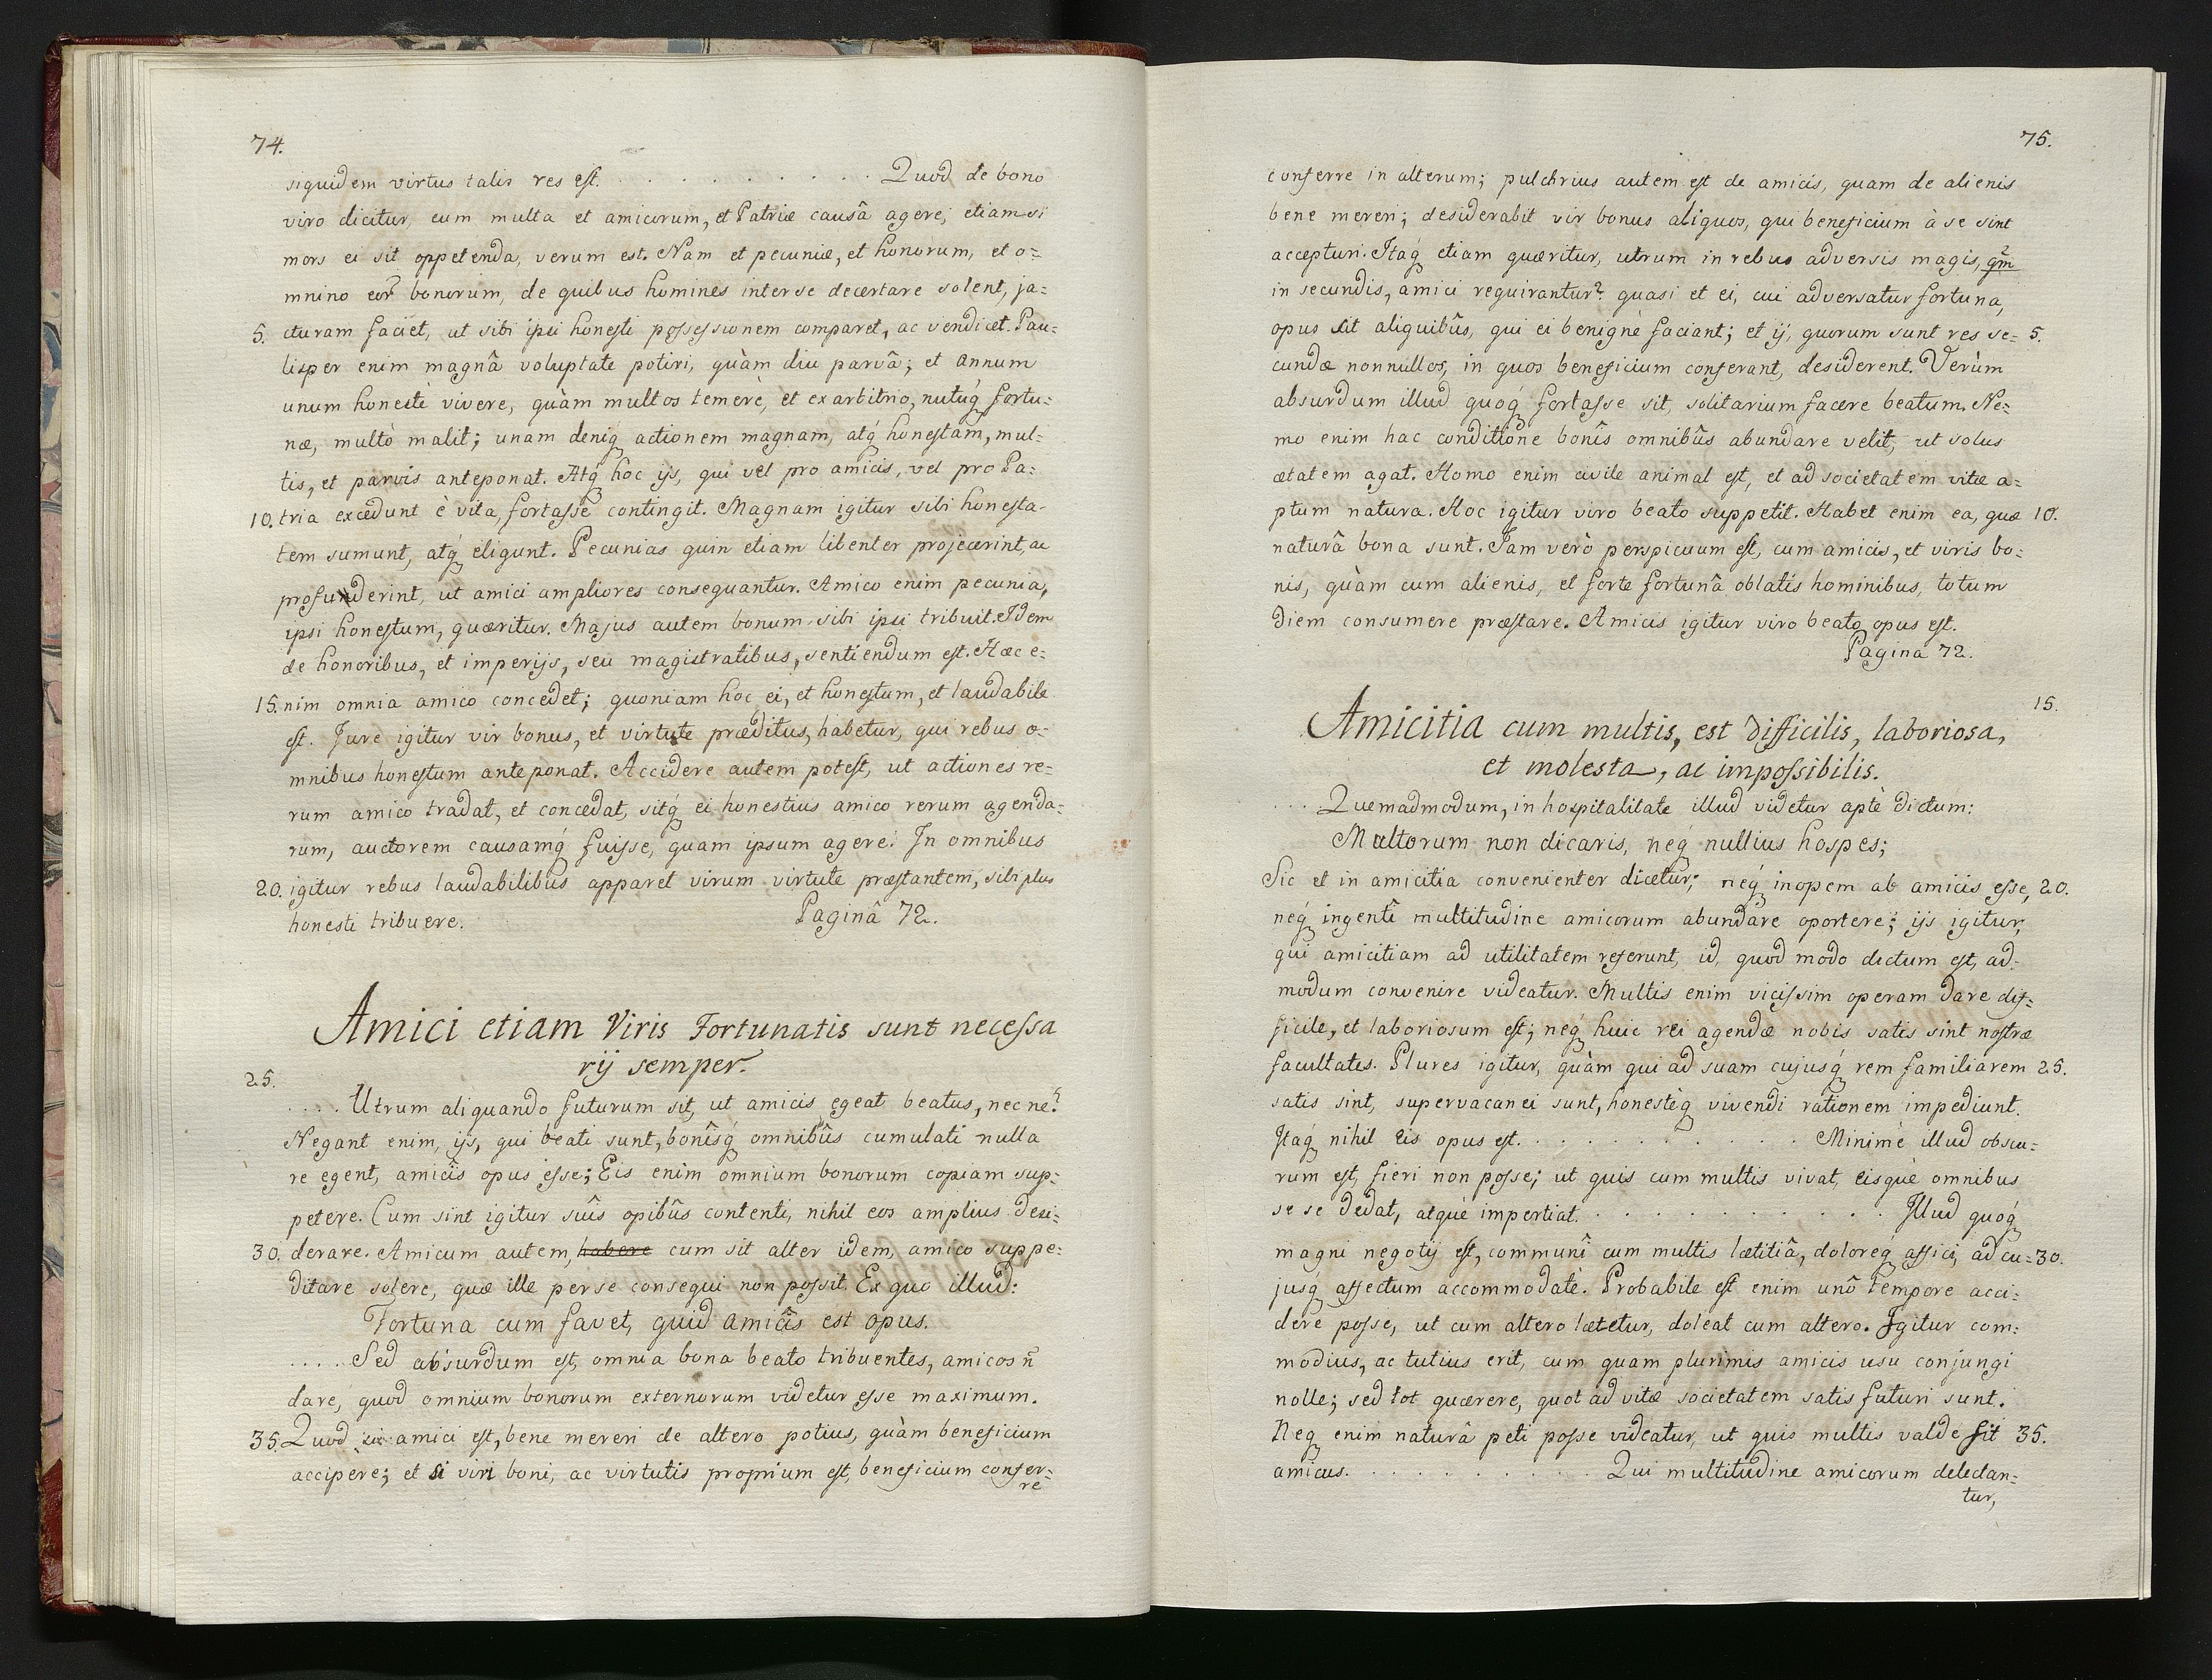 74.
siquidem virtus talis res est. . . . . . . . . . . . Quod de bono
viro dicitur, eum multa et amicorum, et Patriæ causâ agere, etiam si
mors ei sit oppetenda, verum est. Nam et pecuniæ, et honorum, et o=
mnino eor̃ bonorum, de quibus homines inter se decertare solent, ja=
5. cturam faciet, ut sibi ipsi honesti possessionem comparet, ac vendicet. Pau=
lisper enim magnâ voluptate potiri, quàm diu parvâ; et annum
unum honestè vivere, quàm multos temerè, et ex arbitrio, nutuq́ fortu=
næ, multò malit; unam deniq́ actionem magnam, atq́ honestam, mul=
tis, et parvis anteponat. Atq́ hoc ijs, qui vel pro amicis, vel pro Pa=
10. tria excedunt è vita, fortasse contingit. Magnam igitur sibi honesta-
tem sumunt, atq́ eligunt. Pecunias quin etiam libenter projecerint, ac
profuderint, ut amici ampliores consequantur. Amico enim pecunia,
ipsi honestum, quæritur. Majus autem bonum sibi ipsi tribuit. Idem
de honoribus, et imperijs, seu magistratibus, sentiendum est. Hæc e=
15. nim omnia amico concedet; quoniam hoc ei, et honestum, et laudabile
est. Jure igitur vir bonus, et virtute præditus, habetur, qui rebus o=
mnibus honestum anteponat. Accidere autem potest, ut actiones re=
rum amico tradat, et concedat, sitq́ ei honestius amico rerum agenda=
rum, auctorem causamq́ fuisse, quam ipsum agere. In omnibus
20. igitur rebus laudabilibus apparet virum virtute præstantem, sibi plus
honesti tribuere. Paginâ 72.
Amici etiam Viris Fortunatis sunt necessa
rij semper.
25.
. . . . Utrum aliquando futurum sit, ut amicis egeat beatus, nec ne?
Negant enim, ijs, qui beati sunt, bonîsq́ omnibûs cumulati nulla
re egent, amicîs opus esse; Eis enim omnium bonorum copiam sup=
petere. Cum sint igitur suîs opibûs contenti, nihil eos amplius desi=
30. derare. Amicum autem, habere cum sit alter idem, amico suppe=
ditare solere, quæ ille per se consequi non possit. Ex quo illud:
Fortuna cum favet, quid amicîs est opus.
. . . . Sed absurdum est, omnia bona beato tribuentes, amicos ñ
dare, quod omnium bonorum externorum videtur esse maximum.
35. Quod si amici est, bene mereri de altero potius, quàm beneficium
accipere; et si viri boni, ac virtutis proprium est, beneficium confer=
re
75.
conferre in alterum; pulchrius autem est de amicis, quam de alienis
bene mereri; desiderabit vir bonus aliquos, qui beneficium à se sint
accepturi. Itaq́ etiam quæritur, utrum in rebus adversis magis, qm̃
in secundis, amici requirantur? quasi et ei, cui adversatur fortuna,
opus sit aliquibûs, qui ei benignè faciant; et ij, quorum sunt res se= 5.
cundæ nonnullos, in quos beneficium conferant, desiderent. Verùm
absurdum illud quoq́ fortasse sit, solitarium facere beatum. Ne=
mo enim hac conditione bonîs omnibûs abundare velit, ut solus
ætatem agat. Homo enim civile animal est, et ad societatem vitæ a=
ptum natura. Hoc igitur viro beato suppetit. Habet enim ea, quæ 10.
naturâ bona sunt. Jam verò perspicuum est, cum amicis, et viris bo=
nis, quàm cum alienis, et forte fortunâ oblatis hominibus, totum
diem consumere præstare. Amicis igitur viro beato opus est.
Pagina 72.
15.
Amicitia cum multis, est difficilis, laboriosa,
et molesta, ac impossibilis.
. . . Quemadmodum, in hospitalitate illud videtur aptè dictum:
Multorum non dicaris, neq́ nullius hospes;
Sic et in amicitia convenienter dicetur; neq́ inopem ab amicis esse, 20.
neq́ ingentî multitudine amicorum abundare oportere; ijs igitur,
qui amicitiam ad utilitatem referunt, id, quod modo dictum est, ad-
modum convenire videatur. Multis enim vicissim operam dare dif=
ficile, et laboriosum est; neq́ huic rei agendæ nobis satis sint nostræ
facultates. Plures igitur, quàm qui ad suam cujusq́ rem familiarem 25.
satis sint, supervacanei sunt, honestèq́ vivendi rationem impediunt.
Itaq́ nihil eis opus est. . . . . . . . . . . . Minimè illud obscu=
rum est, fieri non posse; ut quis cum multis vivat, eisquè omnibus
se se dedat, atquè impertiat. . . . . . . . . . . . . Illud quoq́
magni negotij est, communî cum multis lætitiâ, doloreq́ affici, ad cu= 30.
jusq́ affectum accommodatè. Probabile est enim unô tempore acci=
dere posse, ut cum altero lætetur, doleat cum altero. Igitur com=
modius, ac tutius erit, cum quam plurimis amicis usu conjungi
nolle; sed tot quærere, quot ad vitæ societatem satis futuri sunt.
Neq enim naturâ peti posse videatur, ut quis multis valde sit 35.
amicus. . . . . . . . . . . Qui multitudine amicorum delectan=
tur,